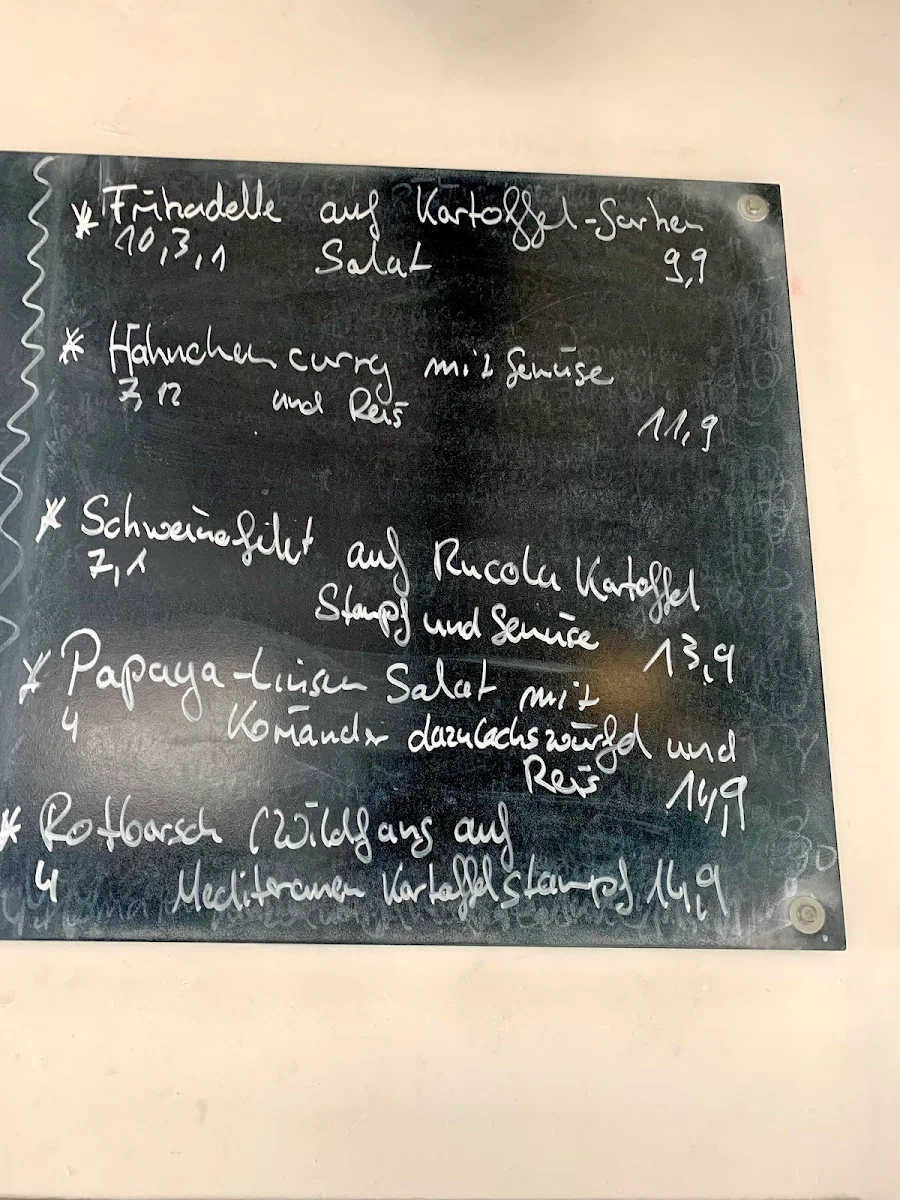 * Frikadelle auf Kartoffel-Gurken
10,3,1 Salat 9,9
* Hähnchencurry mit Gemüse
7, 12 und Reis
11,9
* Schweinefilet auf Rucola Kartoffel
7,1
Stampf und Gemüse 13,9
* Papaya-Linsen Salat mit
4 Koriander dazu Lachswürfel und
Reis 14,9
* Rotbarsch (Wildfang auf
4 Mediteranen Kartoffelstampf 14,9